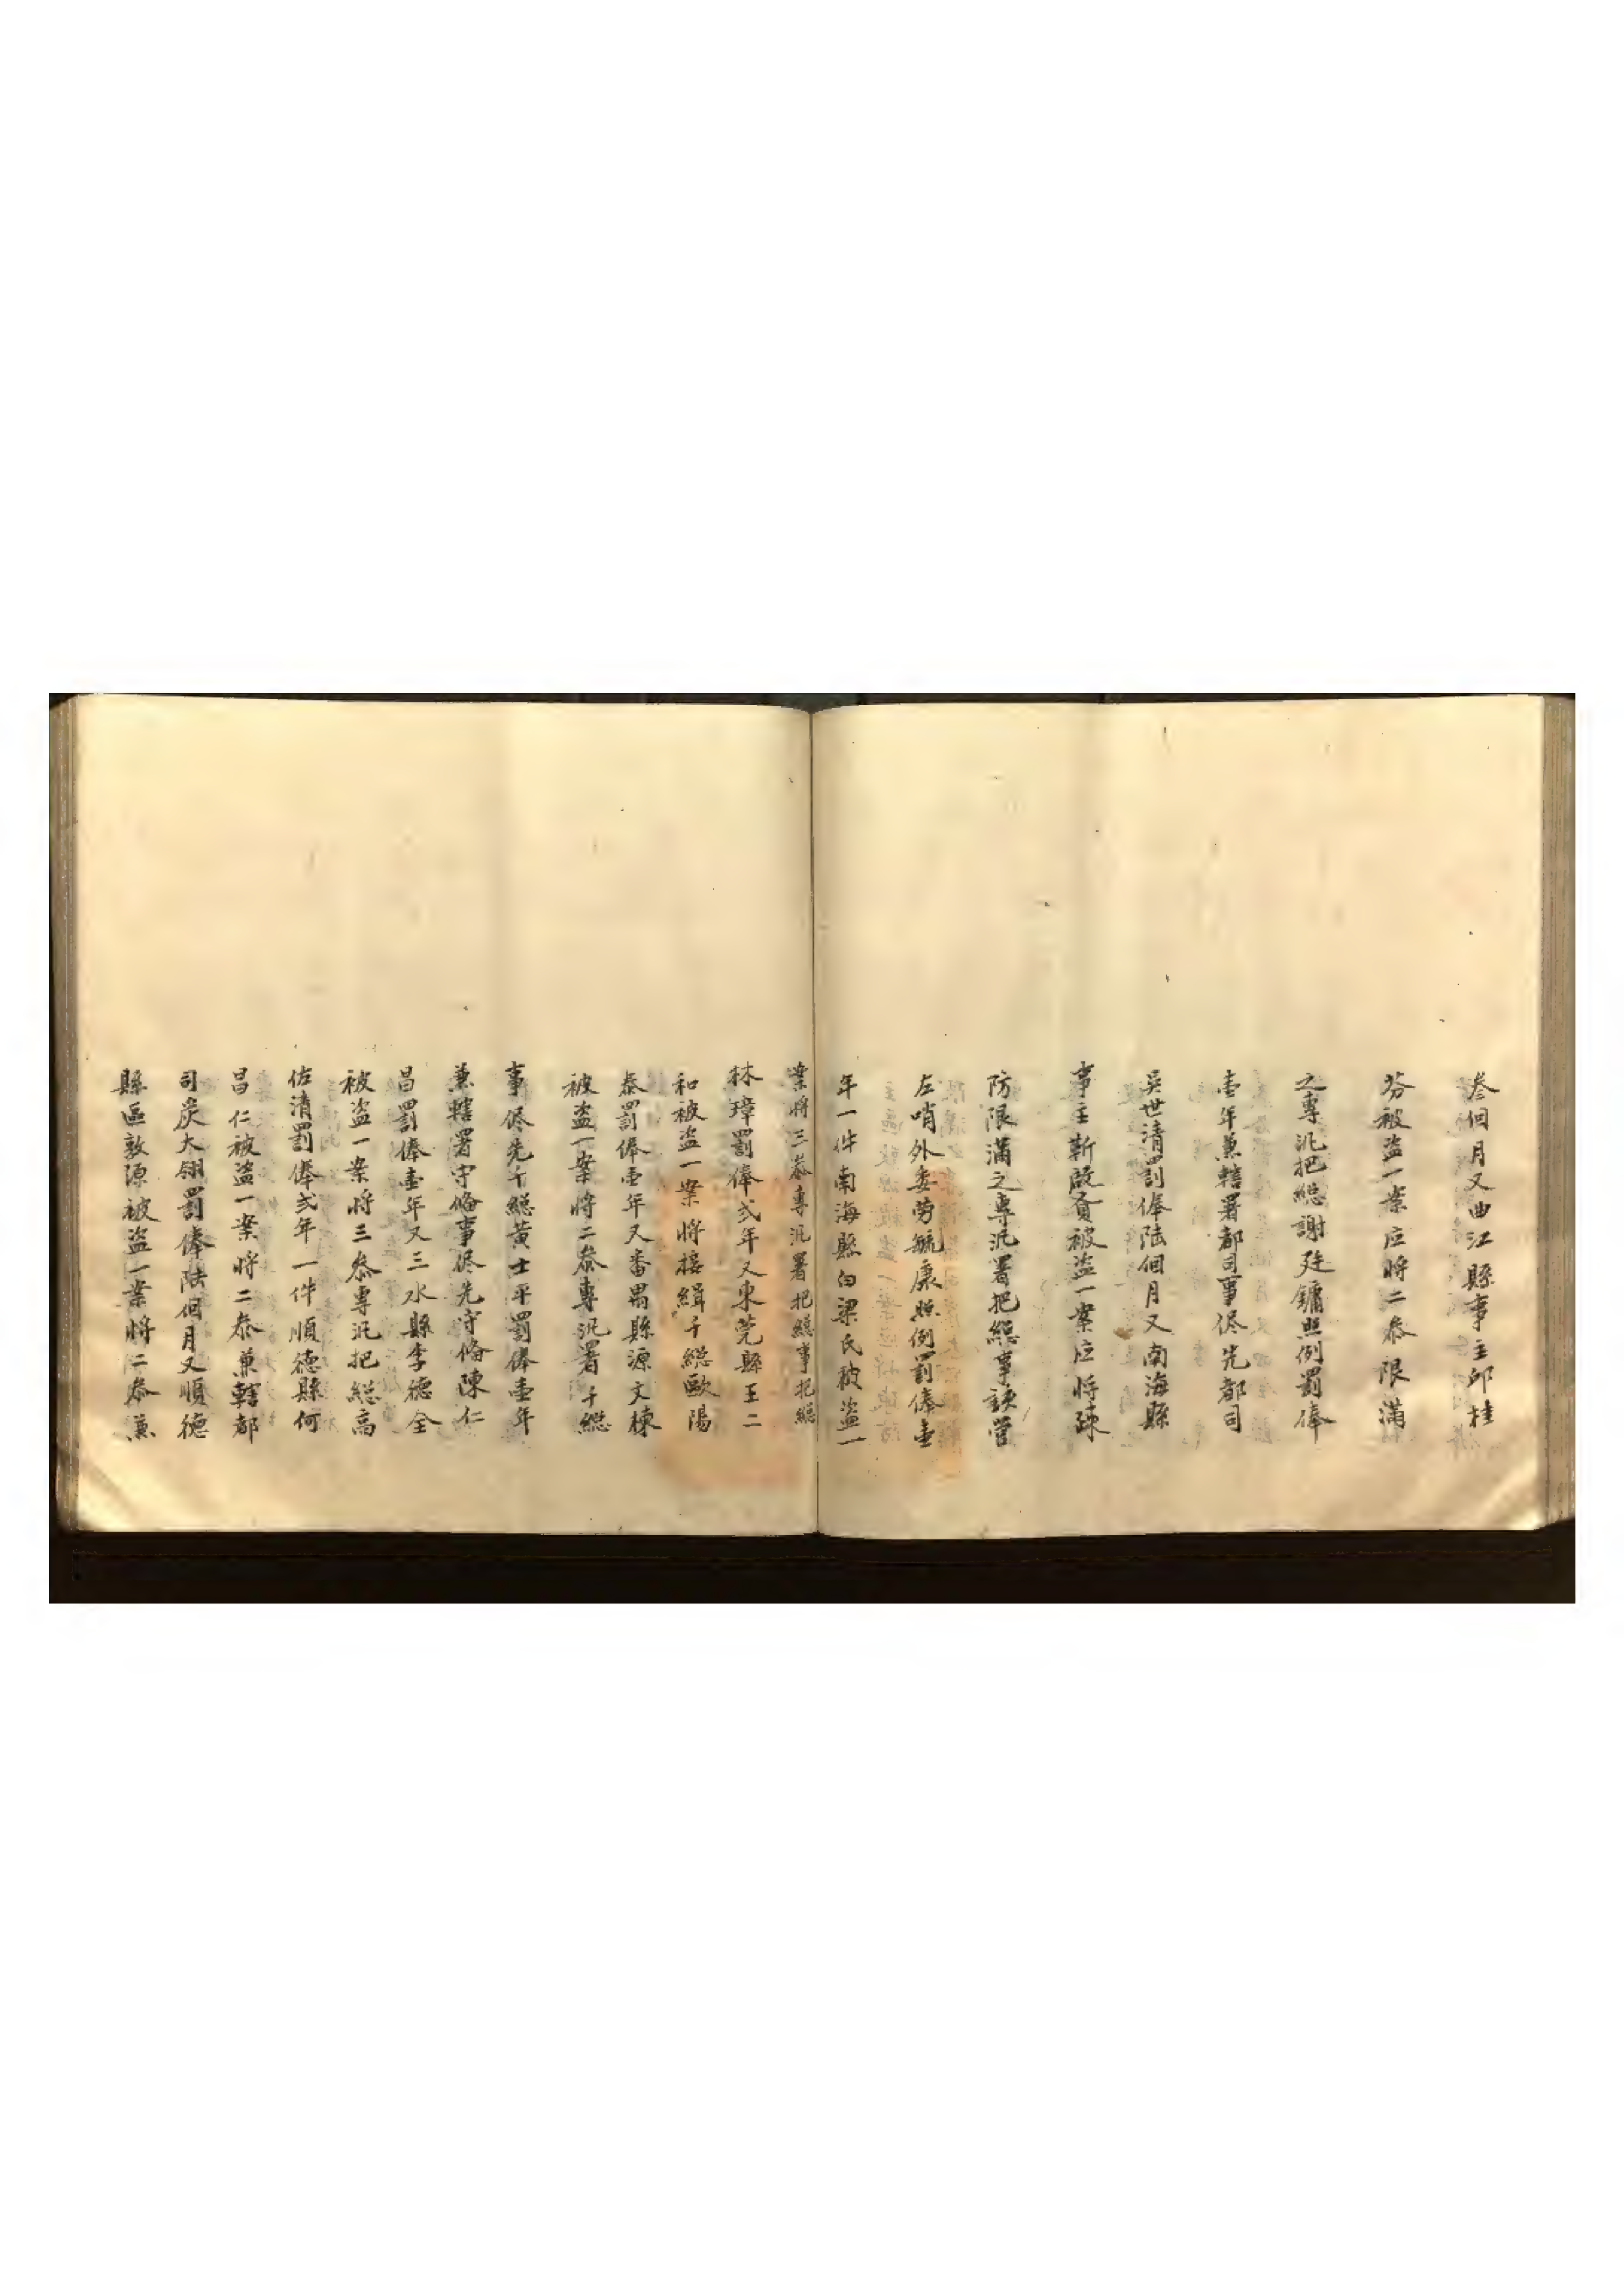 叁個月又曲江縣事主邱桂
芬被盗一案应將二叅限滿
之專汛把緫謝廷鏞照例罰俸
壹年兼轄署都司事侭先都司
吳世清罰俸陆個月又南海縣
事主靳啟賚被盗一案应將踈
防限滿之專汛署把緫事該營
左哨外委勞毓康照例罰俸壹
年一件南海縣白梁氏被盗一
案將三叅專汛署把緫事把緫
林璋罰俸弍年又東莞縣王二
和被盗一案將接緝千緫歐陽
泰罰俸壹年又番禺縣源文棟
被盗一案將二叅專汛署千緫
事侭先千緫黃士平罰俸壹年
兼轄署守俻事侭先守俻陳仁
昌罰俸壹年又三水縣李德全
被盗一案將三叅專汛把緫高
佐清罰俸弍年一件順德縣何
昌仁被盗一案將二叅兼轄都
司炭大翎罰俸陆個月又順德
縣區敦源被盗一案將二叅兼